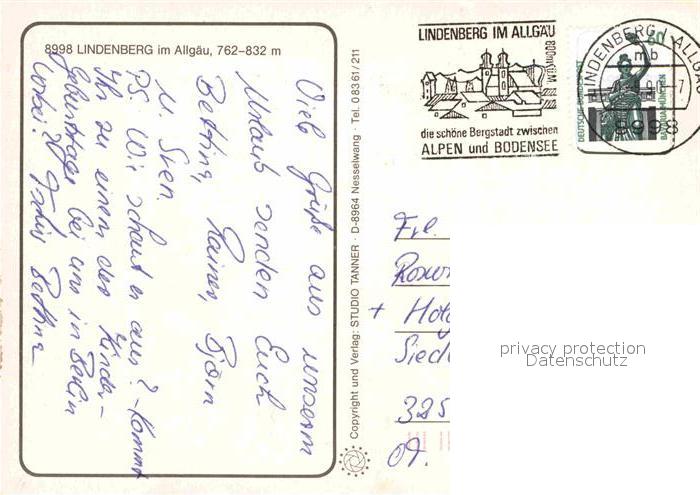 8998 LINDENBERG im Allgäu, 762–832 m
Viele Grüße aus unserem
Urlaub senden Euch
Bettina, Rainer, Björn
u. Sven.
PS. Wie schaut es aus? - Kommt
Ihr zu einem der Kinder-
geburtstage bei uns in Berlin
vorbei? Bettina
Copyright und Verlag: STUDIO TANNER · D-8964 Nesselwang · Tel. 08361/211
LINDENBERG IM ALLGÄU
800m ü.M
die schöne Bergstadt zwischen
ALPEN und BODENSEE
LINDENBERG, ALLGÄU
mb
8998
60
DEUTSCHE BUNDESPOST
BAVARIA MÜNCHEN
Frl.
+
Sied
325
07.
privacy protection
Datenschutz